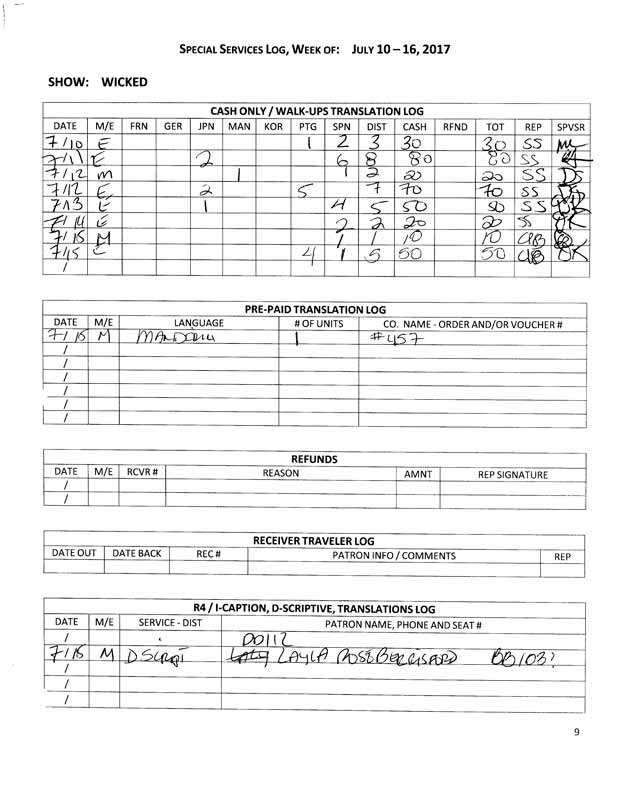 SPECIAL SERVICES LOG, WEEK OF: JULY 10 – 16, 2017
SHOW: WICKED
CASH ONLY / WALK-UPS TRANSLATION LOG
DATE M/E FRN GER JPN MAN KOR PTG SPN DIST CASH RFND TOT REP SPVSR
7/10 E 1 2 3 30 30 SS
7/11 E 2 6 8 80 80 SS
7/12 M 1 1 2 20 20 SS DS
7/12 E 2 5 7 70 70 SS
7/13 E 1 4 5 50 50 SS
7/14 E 2 2 20 20 SS OK
7/15 M 1 1 10 10
7/15 E 4 1 5 50 50 OK
/
PRE-PAID TRANSLATION LOG
DATE M/E LANGUAGE # OF UNITS CO. NAME - ORDER AND/OR VOUCHER #
7/15 M 1 #457
/
/
/
/
/
/
REFUNDS
DATE M/E RCVR # REASON AMNT REP SIGNATURE
/
/
RECEIVER TRAVELER LOG
DATE OUT DATE BACK REC # PATRON INFO / COMMENTS REP
R4 / I-CAPTION, D-SCRIPTIVE, TRANSLATIONS LOG
DATE M/E SERVICE - DIST PATRON NAME, PHONE AND SEAT #
/ DO112
7/15 M D Script LAYLA BB103?
/
/
/
9